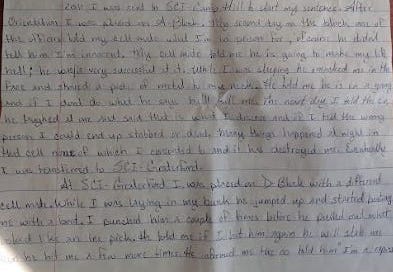 I was sent to SCI-Camp Hill to start my sentence. After
Orientation I was placed on A-Block. My second day on the block one of
the officers told my cell mate what I'm in prison for, of course he didn't
tell him I'm innocent. My cell mate told me he is going to make my life
hell; he was very successful at it. While I was sleeping he smacked me in the
face and shoved a piece of metal to my neck. He told me he is in a gang
and if I dont do what he says he'll kill me. The next day I told the co
he laughed at me and said that is what I deserve and if I tell the wrong
person I could end up stabbed or dead. Many things happened at night in
that cell none of which I consented to and it has destroyed me. Eventually
I was transferred to SCI-Graterford.
At SCI-Graterford I was placed on D Block with a different
cell mate. While I was laying in my bunk he jumped up and started
me with a boot. I punched him a couple of times before he pulled out what
looked like an ice pick. He told me if I hit him again he will stab me
he hit me a few more times. He informed me the co told him "I'm a rapist